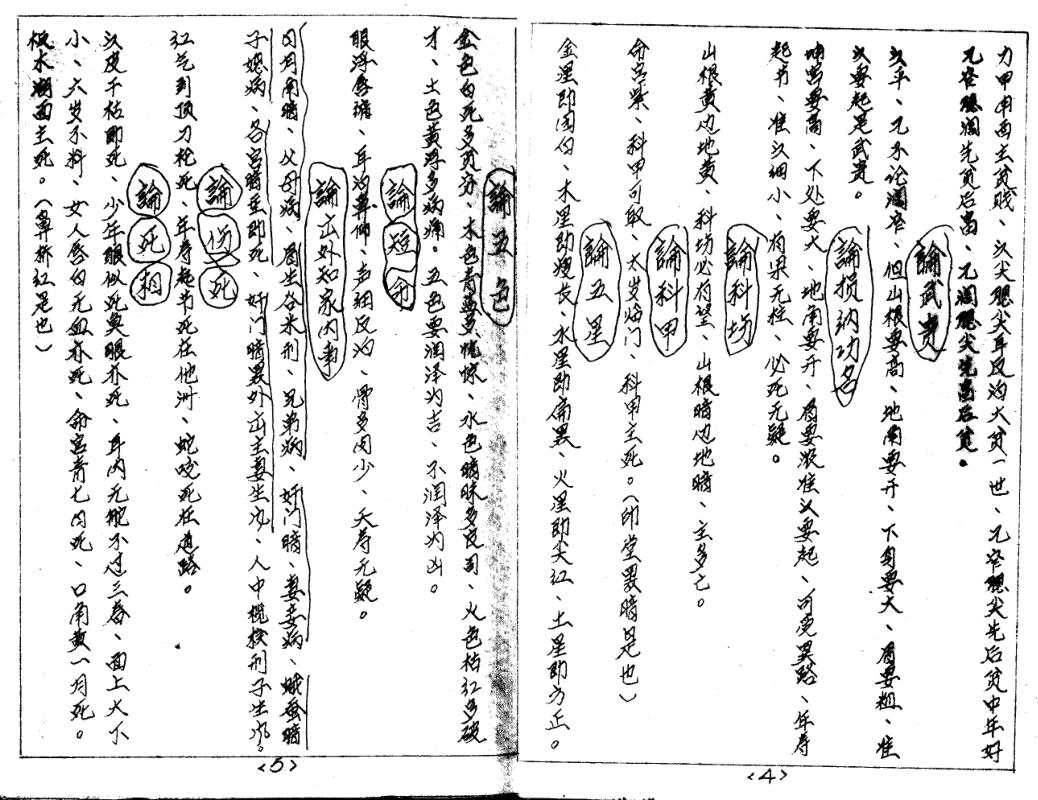 力甲甲面主贫贱、头尖腮尖耳反为大贫一世、元窄腮尖先后贫中年好
元窄腮阔先贫后富、元阔腮尖先富后贫。
論武貴
头平、元不论阔窄、但山根要高、地角要开、下匀要大、眉要粗、准
头要起是武贵。
論损纳功名
坤宫要高、下处要大、地角要开、眉要浓准头要起、可受異路、年寿
起节、准头细小、有果无柱、必死无疑。
論科场
山根黄边地黄、科场必有望、山根暗边地暗、主多亡。
論科甲
命宫紫、科甲可取、太岁临门、科甲主死。(印堂黑暗是也)
論五星
金星即圆白、木星即瘦长、水星即扁黑、火星即尖红、土星即方正。
<4>
論五色
金色白死多贫夯、木色青蓝主慌惊、水色暗昧多官司、火色枯红多破
才、土色黄浮多病痛。五色要润泽为吉、不润泽为凶。
論短命
眼浮唇缩、耳为鼻仰、声细皮为、骨多肉少、夭寿无疑。
論出外知家内事
日月角暗、父母病、眉生谷米刑、兄弟病、奸门暗、妻妾病、蛾蚕暗
子媳病、各宫暗重即死、奸门暗黑外出主妻生凶、人中横纹刑子生凶。
論伤死
红气到顶刀枪死、年寿起节死在他洲、蛇咬死在道路。
論死相
头皮干枯即死、少年眼似死鱼眼亦死、耳内无能不过三春、面上大下
小、六岁不料、女人唇白无血亦死、命宫青七日死、口角黄一月死。
板木潮面主死。(鼻桥红是也)
<5>